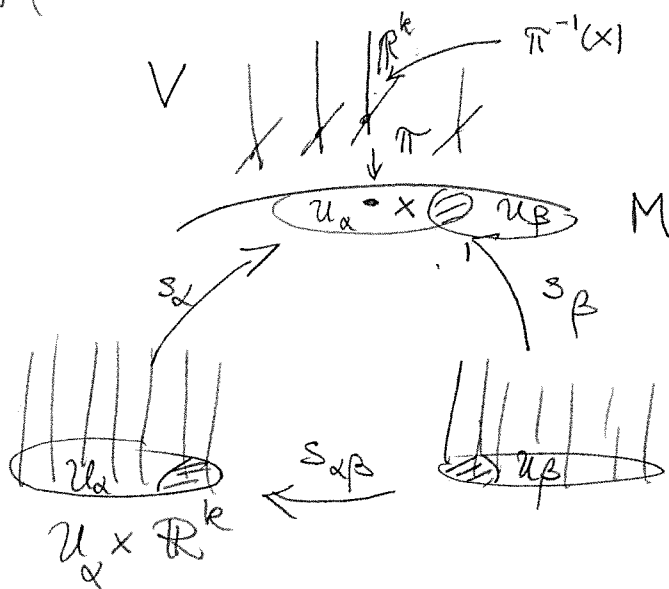 ℝᵏ π⁻¹(x)
V
π
𝒰_α • x 𝒰_β M
s_α s_β
𝒰_α s_αβ 𝒰_β
𝒰_α × ℝᵏ